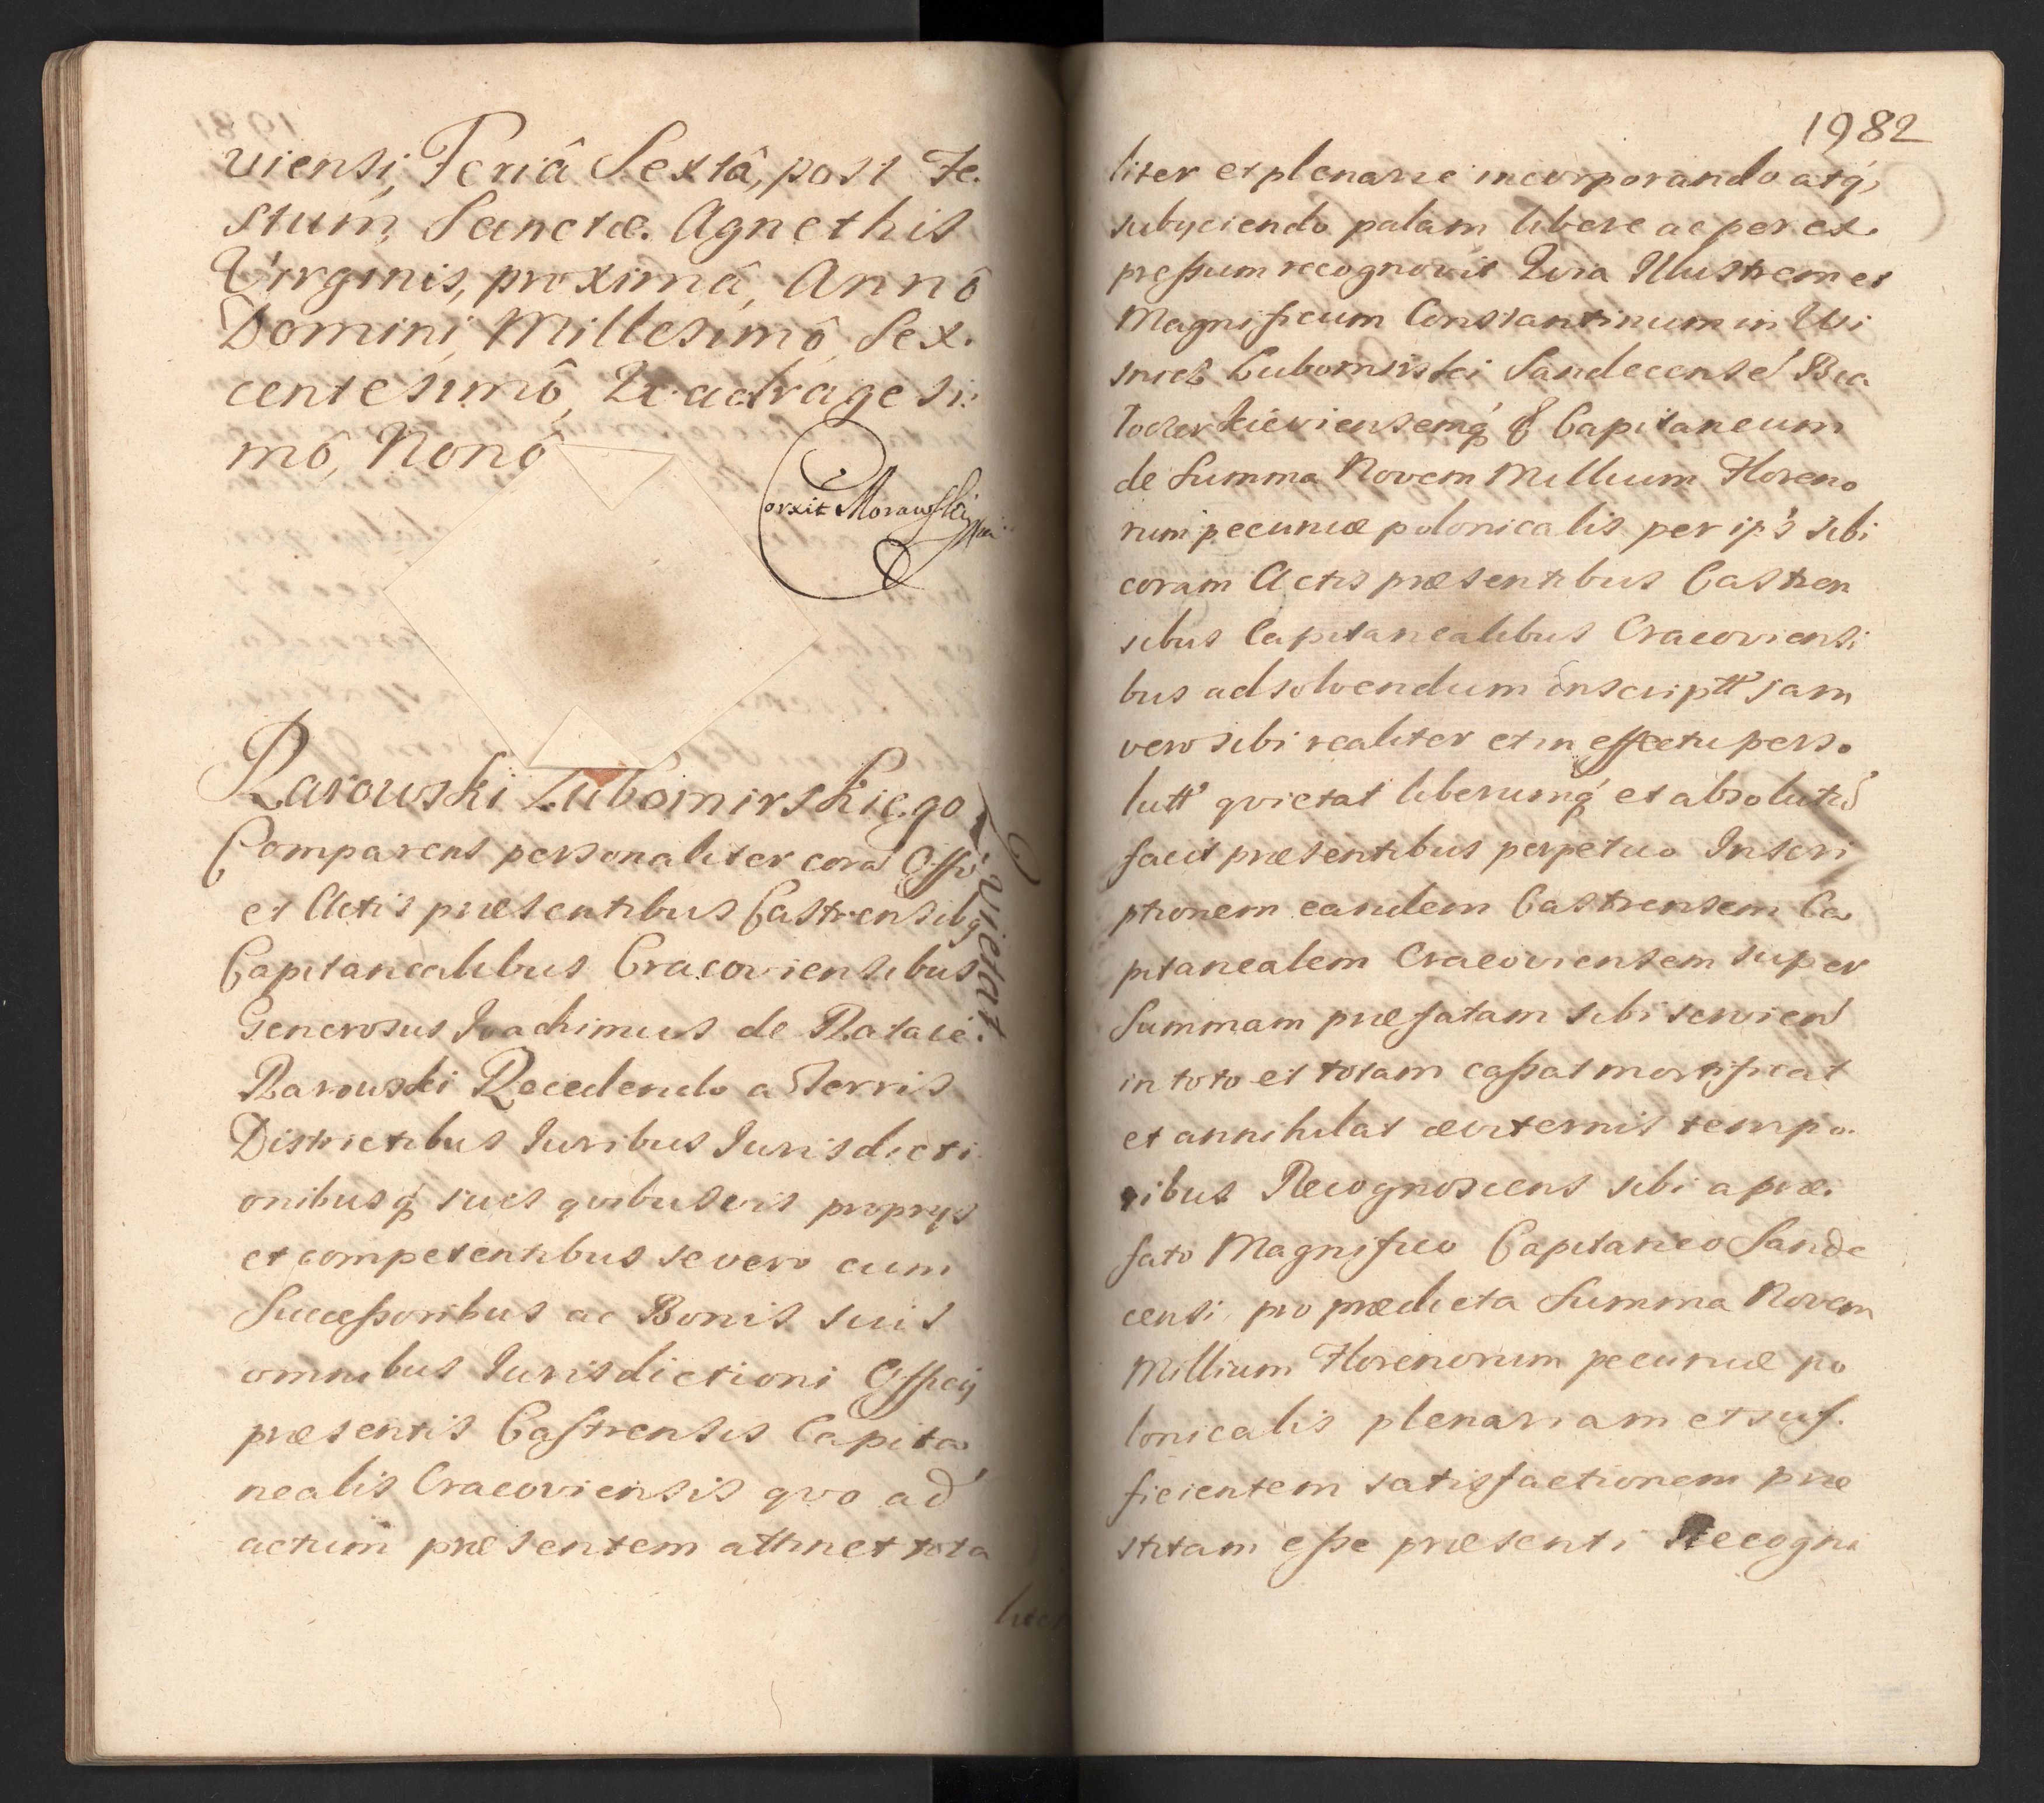 viensi, Feriâ Sextâ, post Fe.
stum, Sanctæ Agnethis
Virginis, proximâ, Annô
Domini, Millesimô, Sex.
centesimô, Quadragesi:
mô, Nonô
Corxit Morawski mp
Rarowski Lubomirskiego
Quietat
Comparens personaliter cora Offo
et Actis præsentibus Castrensibq
Capitanealibus Cracoviensibus
Generosus Joachimus de Rataie.
Rarowski Recedendo a Terris
Districtibus Iuribus Iurisdicti
onibusq suis qvibusvis proprys
et competentibus se vero cum
Successoribus ac Bonis suis
omnibus Iurisdictioni Officy
præsentis Castrensis Capita
nealis Cracoviensis qvo ad
actum præsentem attinet tota
1982
liter et plenarie incorporando atq,
subyciendo palam libere ac per ex.
pressum recognovit Qvia Illustrem et
Magnificum Constantinum in Wi
snicz Lubomirski Sandecense Bia
locerkieviensemq Capitaneum
de Summa Novem Millium Floreno
rum pecuniæ polonicalis per ips sibi
coram Actis præsentibus Castren
sibus Capitanealibus Cracoviensi
bus ad solvendum inscriptt jam
vero sibi realiter et in effectu perso
lutt qvietat liberumq et absolutu
facit præsentibus perpetuo Inscri
ptionem eandem Castrensem Ca
pitanealem Cracoviensem super
Summam præfatam sibi servien
in toto et totam cassat mortificat
et annihilat æviternis tempo.
ribus Recognoscens sibi a præ.
fato Magnifico Capitaneo Sande
censi, pro prædicta Summa Novem
Millium Florenorum pecuniæ po
lonicalis plenariam et suf.
ficientem satisfactionem præ
stitam esse præsenti Recogni